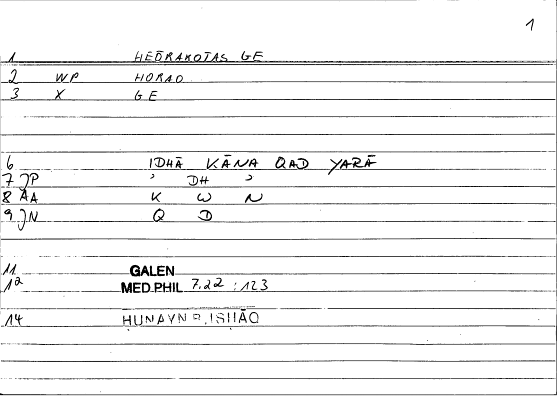 1
1 HEŌRAKOTAS GE
2 WP HORAO
3 X GE
6 IDHĀ KĀNA QAD YARĀ
7 JP ʾ DH ʾ
8 AA K W N
9 JN Q D
11 GALEN
12 MED.PHIL 7.22 :123
14 HUNAYN B. ISHĀQ